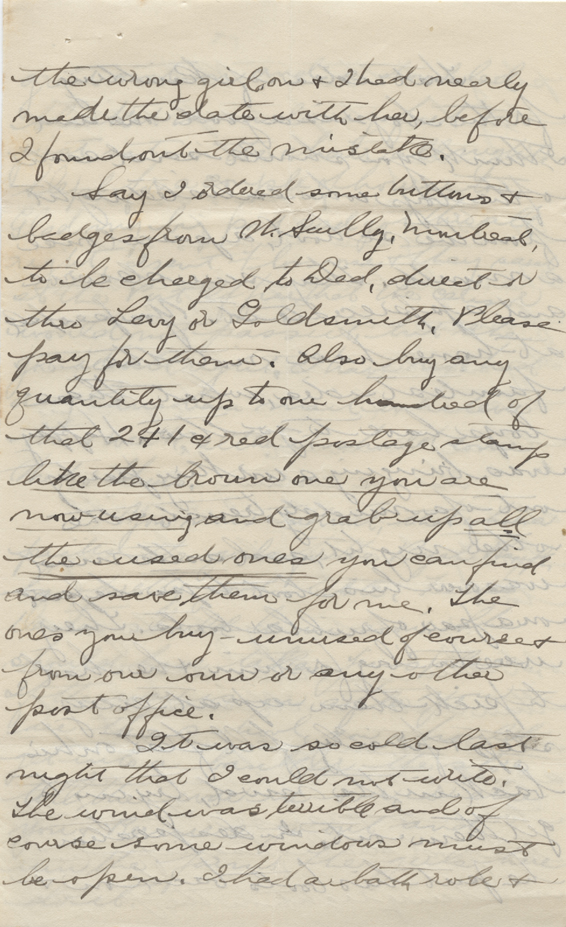 the wrong girl on & I had nearly
made the date with her, before
I found out the mistake.
Say I ordered some buttons &
badges from W. Scully, Montreal,
to be charged to Dad, direct or
thro Levy or Goldsmith. Please
pay for them. Also buy any
quantity up to one hundred of
that 2 + 1 ¢ red postage stamp
like the brown one you are
now using and grab up all
the used ones you can find
and save them for me. The
ones you buy - unused of course &
from our own or any other
post office.
It was so cold last
night that I could not write.
The wind was terrible and of
course some windows must
be open. I had a bath robe &